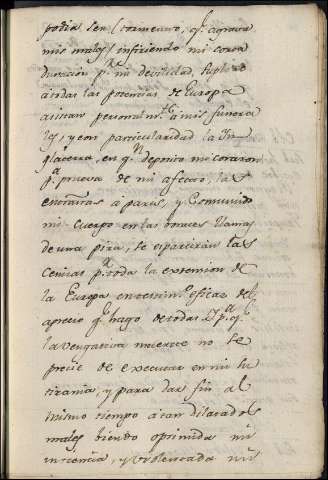 podia ser (tormento, q.e agrava
mis males) infiriendo mi corta
duracion p.r mi devilidad, suplico
a todas las potencias de Europa
asistan personalm.te a mis funera
les, y con particularidad la Yn
glaterra, en q.n deposito mi corazon
p.a prueva de mi afecto, las
entrañas á paris, y
mi cuerpo en las voraces llamas
de una pira, se esparciran las
cenizas p.r toda la extension de
la Europa en testim.o eficaz del
aprecio q.e hago de todas. Y p.a q.e
la vengativa muerte no se
precie de executar en mi su
tirania, y para dar fin al
mismo tiempo á tan dilatados
males viendo oprimida mi
inocencia, y violentada mi